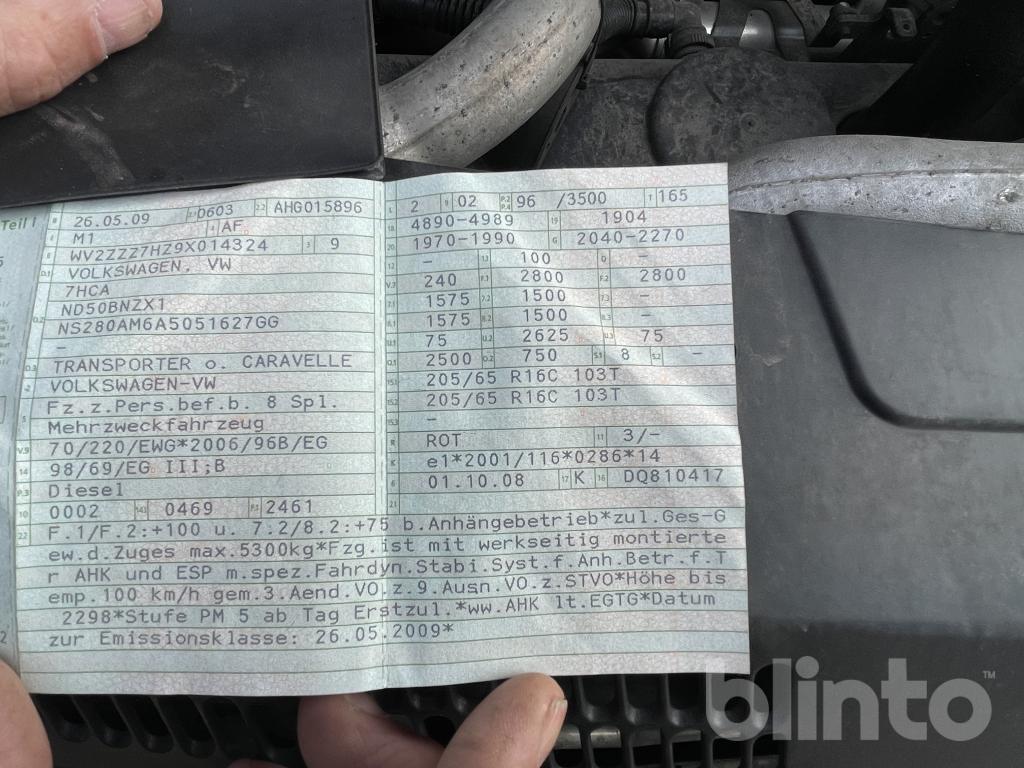 Teil I
B 26.05.09 2.1 0603 2.2 AHG015896
J M1 4 AF
E WV2ZZZ7HZ9X014324 3 9
D.1 VOLKSWAGEN, VW
7HCA
D.2 ND50BNZX1
NS280AM6A5051627GG
–
D.3 TRANSPORTER o. CARAVELLE
2 VOLKSWAGEN-VW
5 Fz.z.Pers.bef.b. 8 Spl.
Mehrzweckfahrzeug
V.9 70/220/EWG*2006/96B/EG
14 98/69/EG III;B
P.3 Diesel
10 0002 14.1 0469 P.1 2461
L 2 9 02 P.2 P.4 96 /3500 T 165
18 4890-4989 19 1904
20 1970-1990 G 2040-2270
12 – 13 100 Q –
V.7 240 F.1 2800 F.2 2800
7.1 1575 7.2 1500 7.3 –
8.1 1575 8.2 1500 8.3 –
U.1 75 U.2 2625 U.3 75
O.1 2500 O.2 750 S.1 8 S.2 –
15.1 205/65 R16C 103T
15.2 205/65 R16C 103T
15.3 –
R ROT 11 3/–
K e1*2001/116*0286*14
6 01.10.08 17 K 16 DQ810417
21
22 F.1/F.2:+100 u. 7.2/8.2:+75 b.Anhängebetrieb*zul.Ges-G
ew.d.Zuges max.5300kg*Fzg.ist mit werkseitig montierte
r AHK und ESP m.spez.Fahrdyn.Stabi.Syst.f.Anh.Betr.f.T
emp.100 km/h gem.3.Aend.VO.z.9.Ausn.VO.z.STVO*Höhe bis
2298*Stufe PM 5 ab Tag Erstzul.*ww.AHK lt.EGTG*Datum
zur Emissionsklasse: 26.05.2009*
blinto™